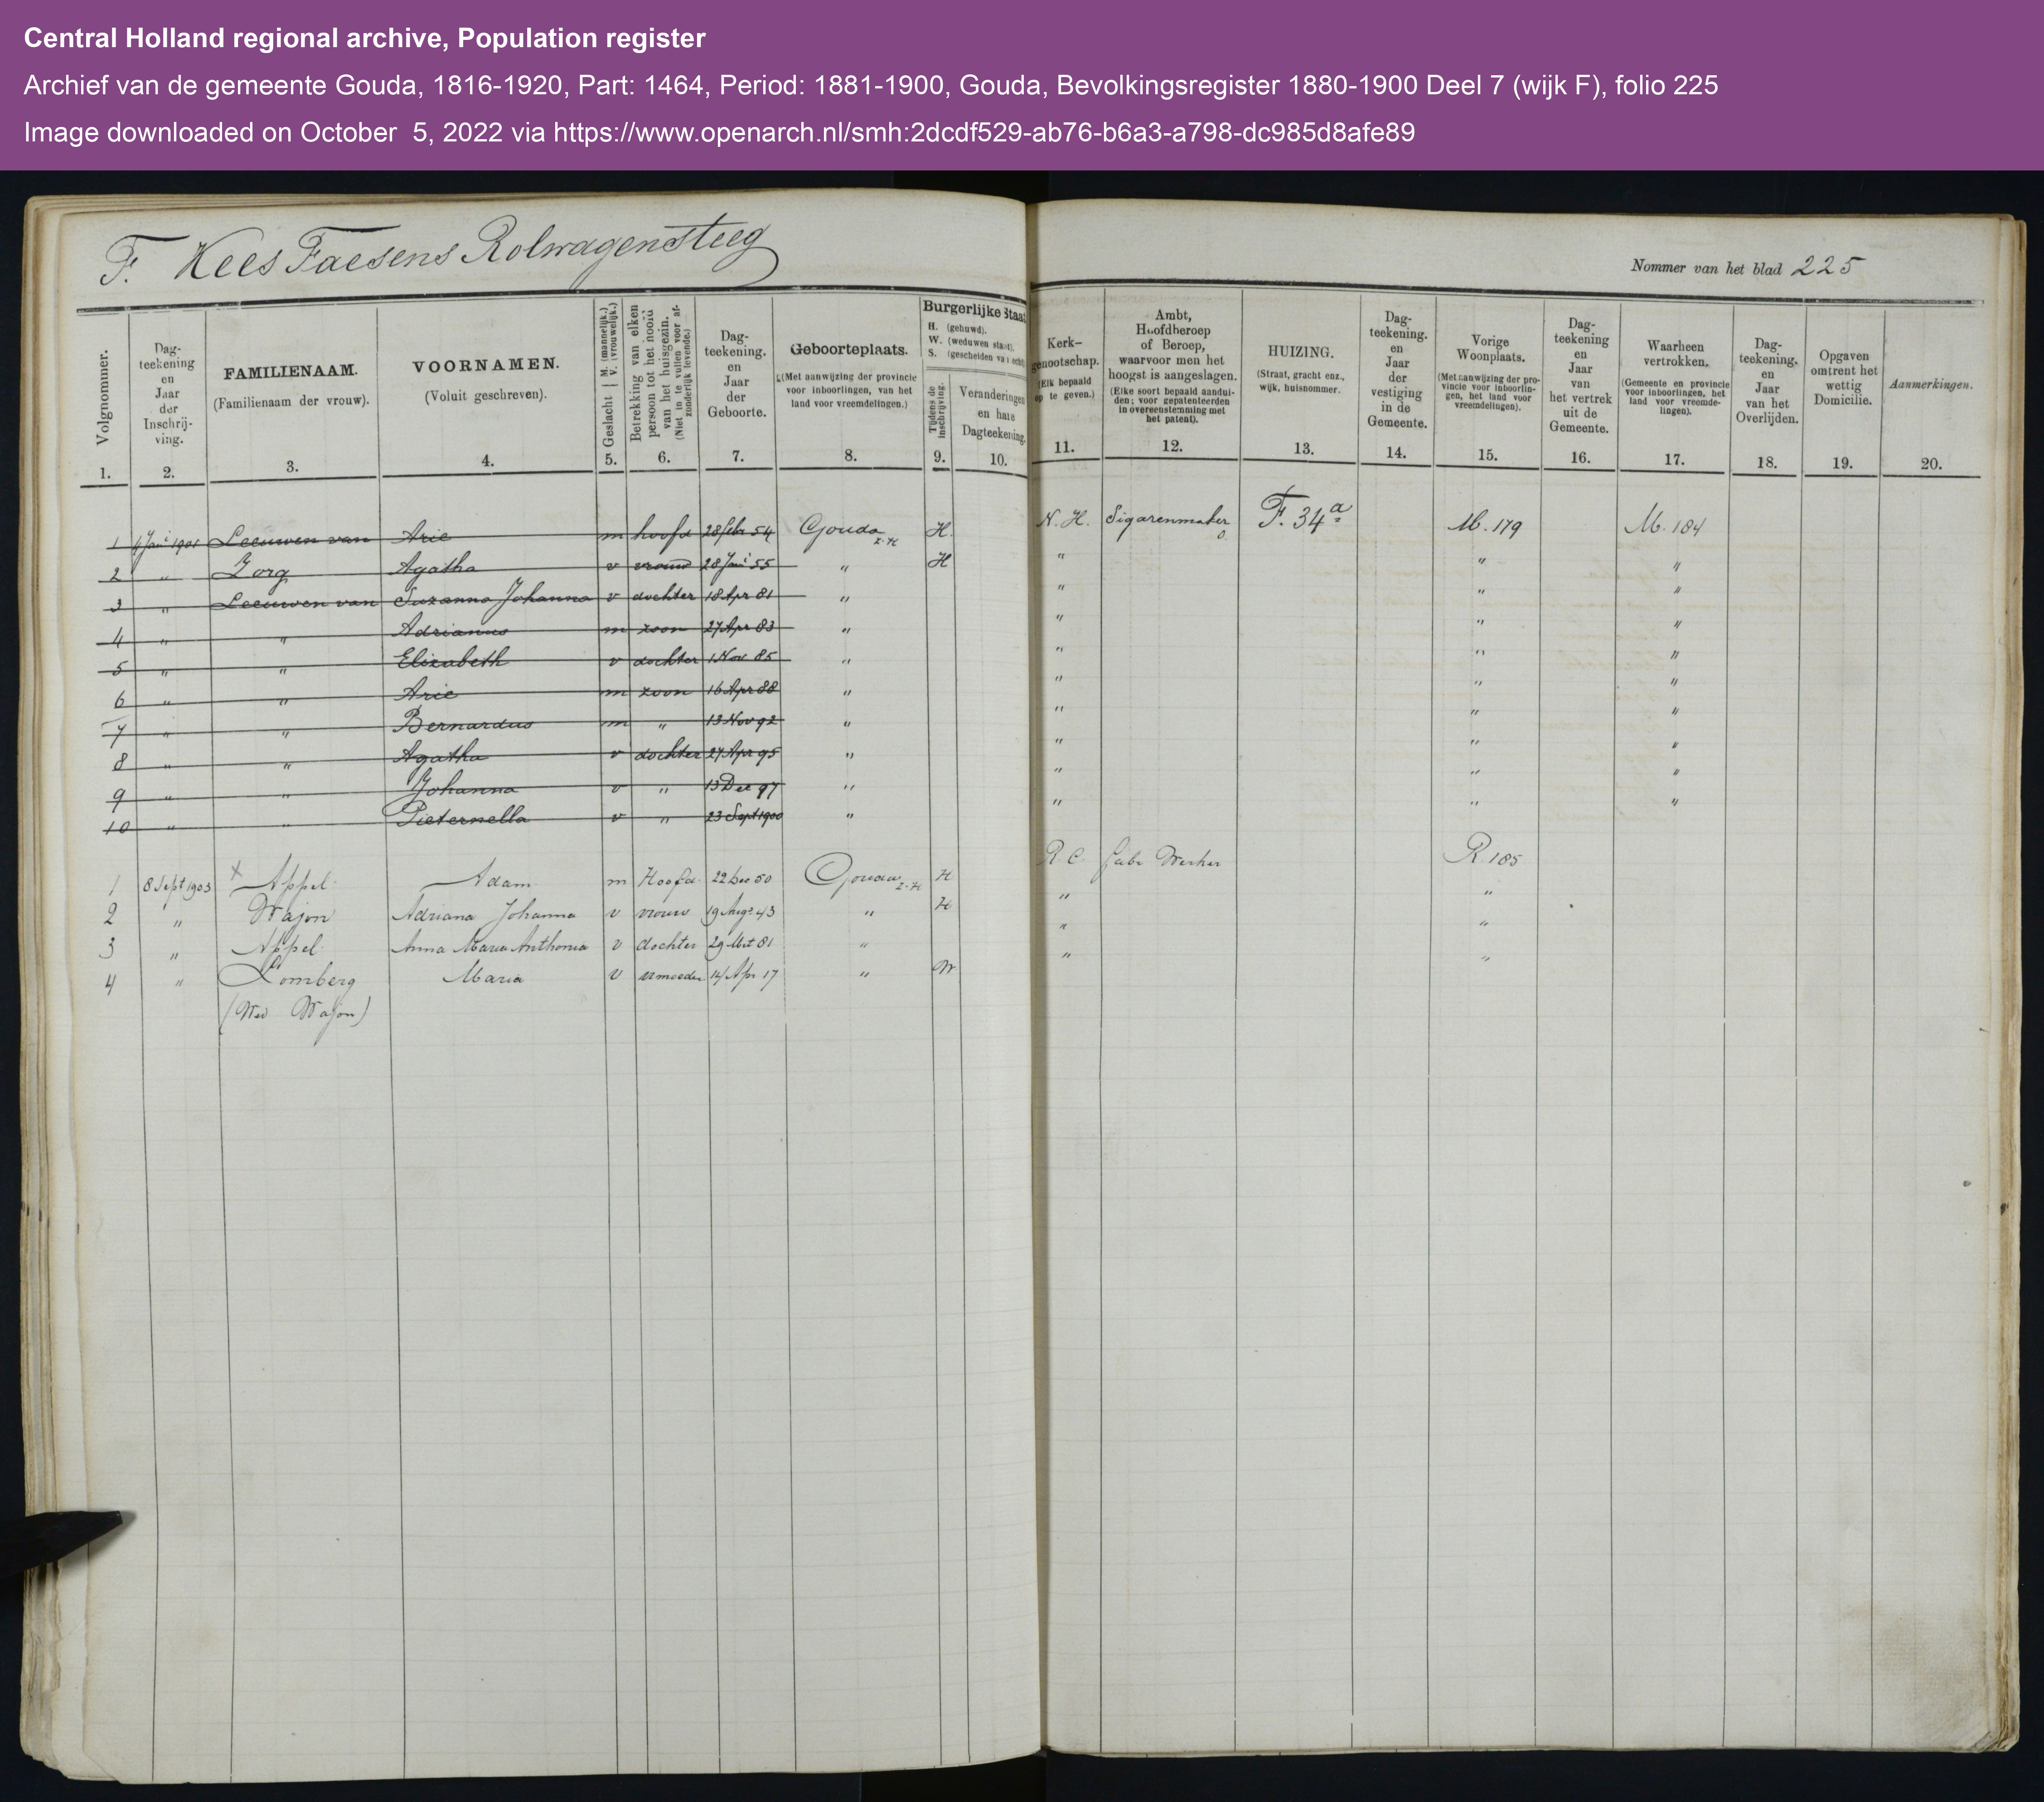 Central Holland regional archive, Population register
Archief van de gemeente Gouda, 1816-1920, Part: 1464, Period: 1881-1900, Gouda, Bevolkingsregister 1880-1900 Deel 7 (wijk F), folio 225
Image downloaded on October 5, 2022 via https://www.openarch.nl/smh:2dcdf529-ab76-b6a3-a798-dc985d8afe89
F. Kees Faesens Rolwagensteeg
Nommer van het blad 225
Volgnommer. 1.
Dag-
teekening
en
Jaar
der
Inschrij-
ving.
2.
FAMILIENAAM.
(Familienaam der vrouw).
3.
VOORNAMEN.
(Voluit geschreven).
4.
Geslacht M. (mannelijk.) V. (vrouwelijk.)
5.
Betrekking van elken
persoon tot het hoofd
van het huisgezin.
(Niet in te vullen voor af-
zonderlijk levende.)
6.
Dag-
teekening.
en
Jaar
der
Geboorte.
7.
Geboorteplaats.
(Met aanwijzing der provincie
voor inboorlingen, van het
land voor vreemdelingen.)
8.
Burgerlijke Staat
H. (gehuwd).
W. (weduwen staat).
S. (gescheiden van echt)
Tijdens de
inschrijving.
9.
Veranderingen
en hare
Dagteekening.
10.
Kerk-
genootschap.
(Elk bepaald
op te geven.)
11.
Ambt,
Hoofdberoep
of Beroep,
waarvoor men het
hoogst is aangeslagen.
(Elke soort bepaald aandui-
den; voor gepatenteerden
in overeenstemming met
het patent).
12.
HUIZING.
(Straat, gracht enz.,
wijk, huisnommer.
13.
Dag-
teekening.
en
Jaar
der
vestiging
in de
Gemeente.
14.
Vorige
Woonplaats.
(Met aanwijzing der pro-
vincie voor inboorlin-
gen, het land voor
vreemdelingen).
15.
Dag-
teekening
en
Jaar
van
het vertrek
uit de
Gemeente.
16.
Waarheen
vertrokken.
(Gemeente en provincie
voor inboorlingen, het
land voor vreemde-
lingen).
17.
Dag-
teekening.
en
Jaar
van het
Overlijden.
18.
Opgaven
omtrent het
wettig
Domicilie.
19.
Aanmerkingen.
20.
1 Jan 1901 Leeuwen van Arie m hoofd 28 febr 54 Gouda Z.H H. N.H. Sigarenmaker F. 34a M. 179 M. 184
2 " Zorg Agatha v vrouw 28 Jan 55 " H " " "
3 " Leeuwen van Suzanna Johanna v dochter 18 Apr 81 " " " "
4 " " Adrianus m zoon 27 Apr 83 " " " "
5 " " Elizabeth v dochter 1 Nov 85 " " " "
6 " " Arie m zoon 16 Apr 88 " " " "
7 " " Bernardus m " 13 Nov 92 " " " "
8 " " Agatha v dochter 27 Apr 95 " " " "
9 " " Johanna v " 13 Dec 97 " " " "
10 " " Pieternella v " 23 Sept 1900 " " " "
1 8 Sept 1903 x Appel Adam m Hoofd 22 Dec 50 Gouda Z.H H R.C. fabr Werker R 185
2 " Wajon Adriana Johanna v vrouw 19 Aug 43 " H " "
3 " Appel Anna Maria Anthonia v dochter 29 Mrt 81 " " "
4 " Lomberg Maria v 14 Apr 17 " W " "
(Wed Wajon)